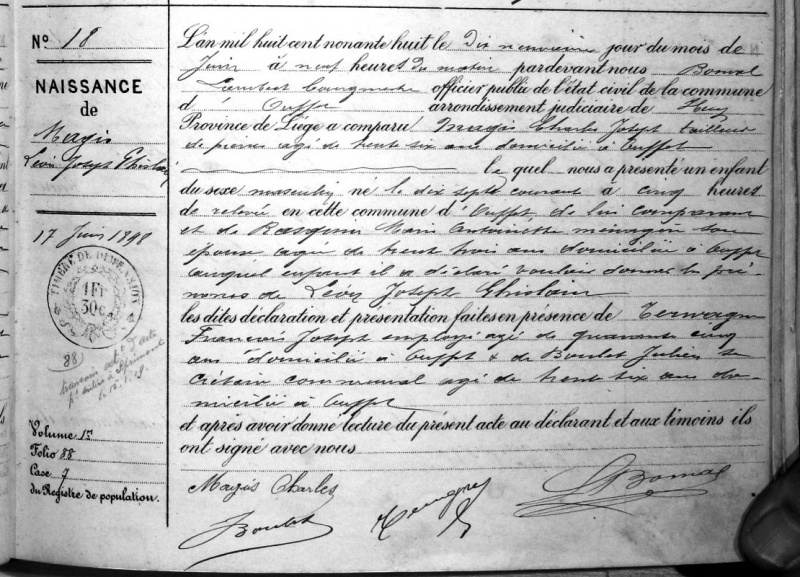 N° 18
NAISSANCE
de
Magis
Léon Joseph Ghislain
17 Juin 1898
TIMBRE DE DIMENSION
1 Fr
30 c
88
Volume 15
Folio 88
Case 7
du Registre de population.
L'an mil huit cent nonante huit le Dix neuvième jour du mois de
Juin à neuf heures du matin pardevant nous Bomal
Lambert bourgmestre officier public de l'état civil de la commune
d' Ouffet arrondissement judiciaire de Huy
Province de Liége a comparu Magis Charles Joseph tailleur
de pierres agé de trente six ans domicilié à Ouffet
le quel nous a présenté un enfant
du sexe masculin né le dix sept courant à cinq heures
de relevée en cette commune d'Ouffet, de lui comparant
et de Rasquin Marie Antoinette ménagère son
épouse agée de trente trois ans domiciliée à Ouffet
auquel enfant il a déclaré vouloir donner les pré-
noms de Léon Joseph Ghislain
les dites déclaration et présentation faites en présence de Terwagne
François Joseph employé agé de quarante cinq
ans domicilié à Ouffet & de Boulet Julien se
crétaire communal agé de trente six ans do-
micilié à Ouffet
et après avoir donné lecture du présent acte au déclarant et aux témoins ils
ont signé avec nous
Magis Charles
LBomal
JBoulet